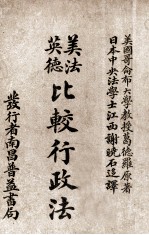 美國哥侖布大學教授葛德羅原著
日本中央法學士江西謝曉石述譯
美法
英德
比較行政法
發行者南昌普益書局